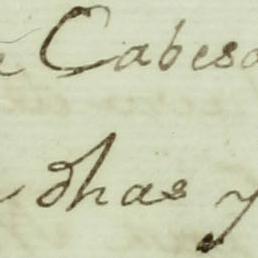 Cabesa
dhas y